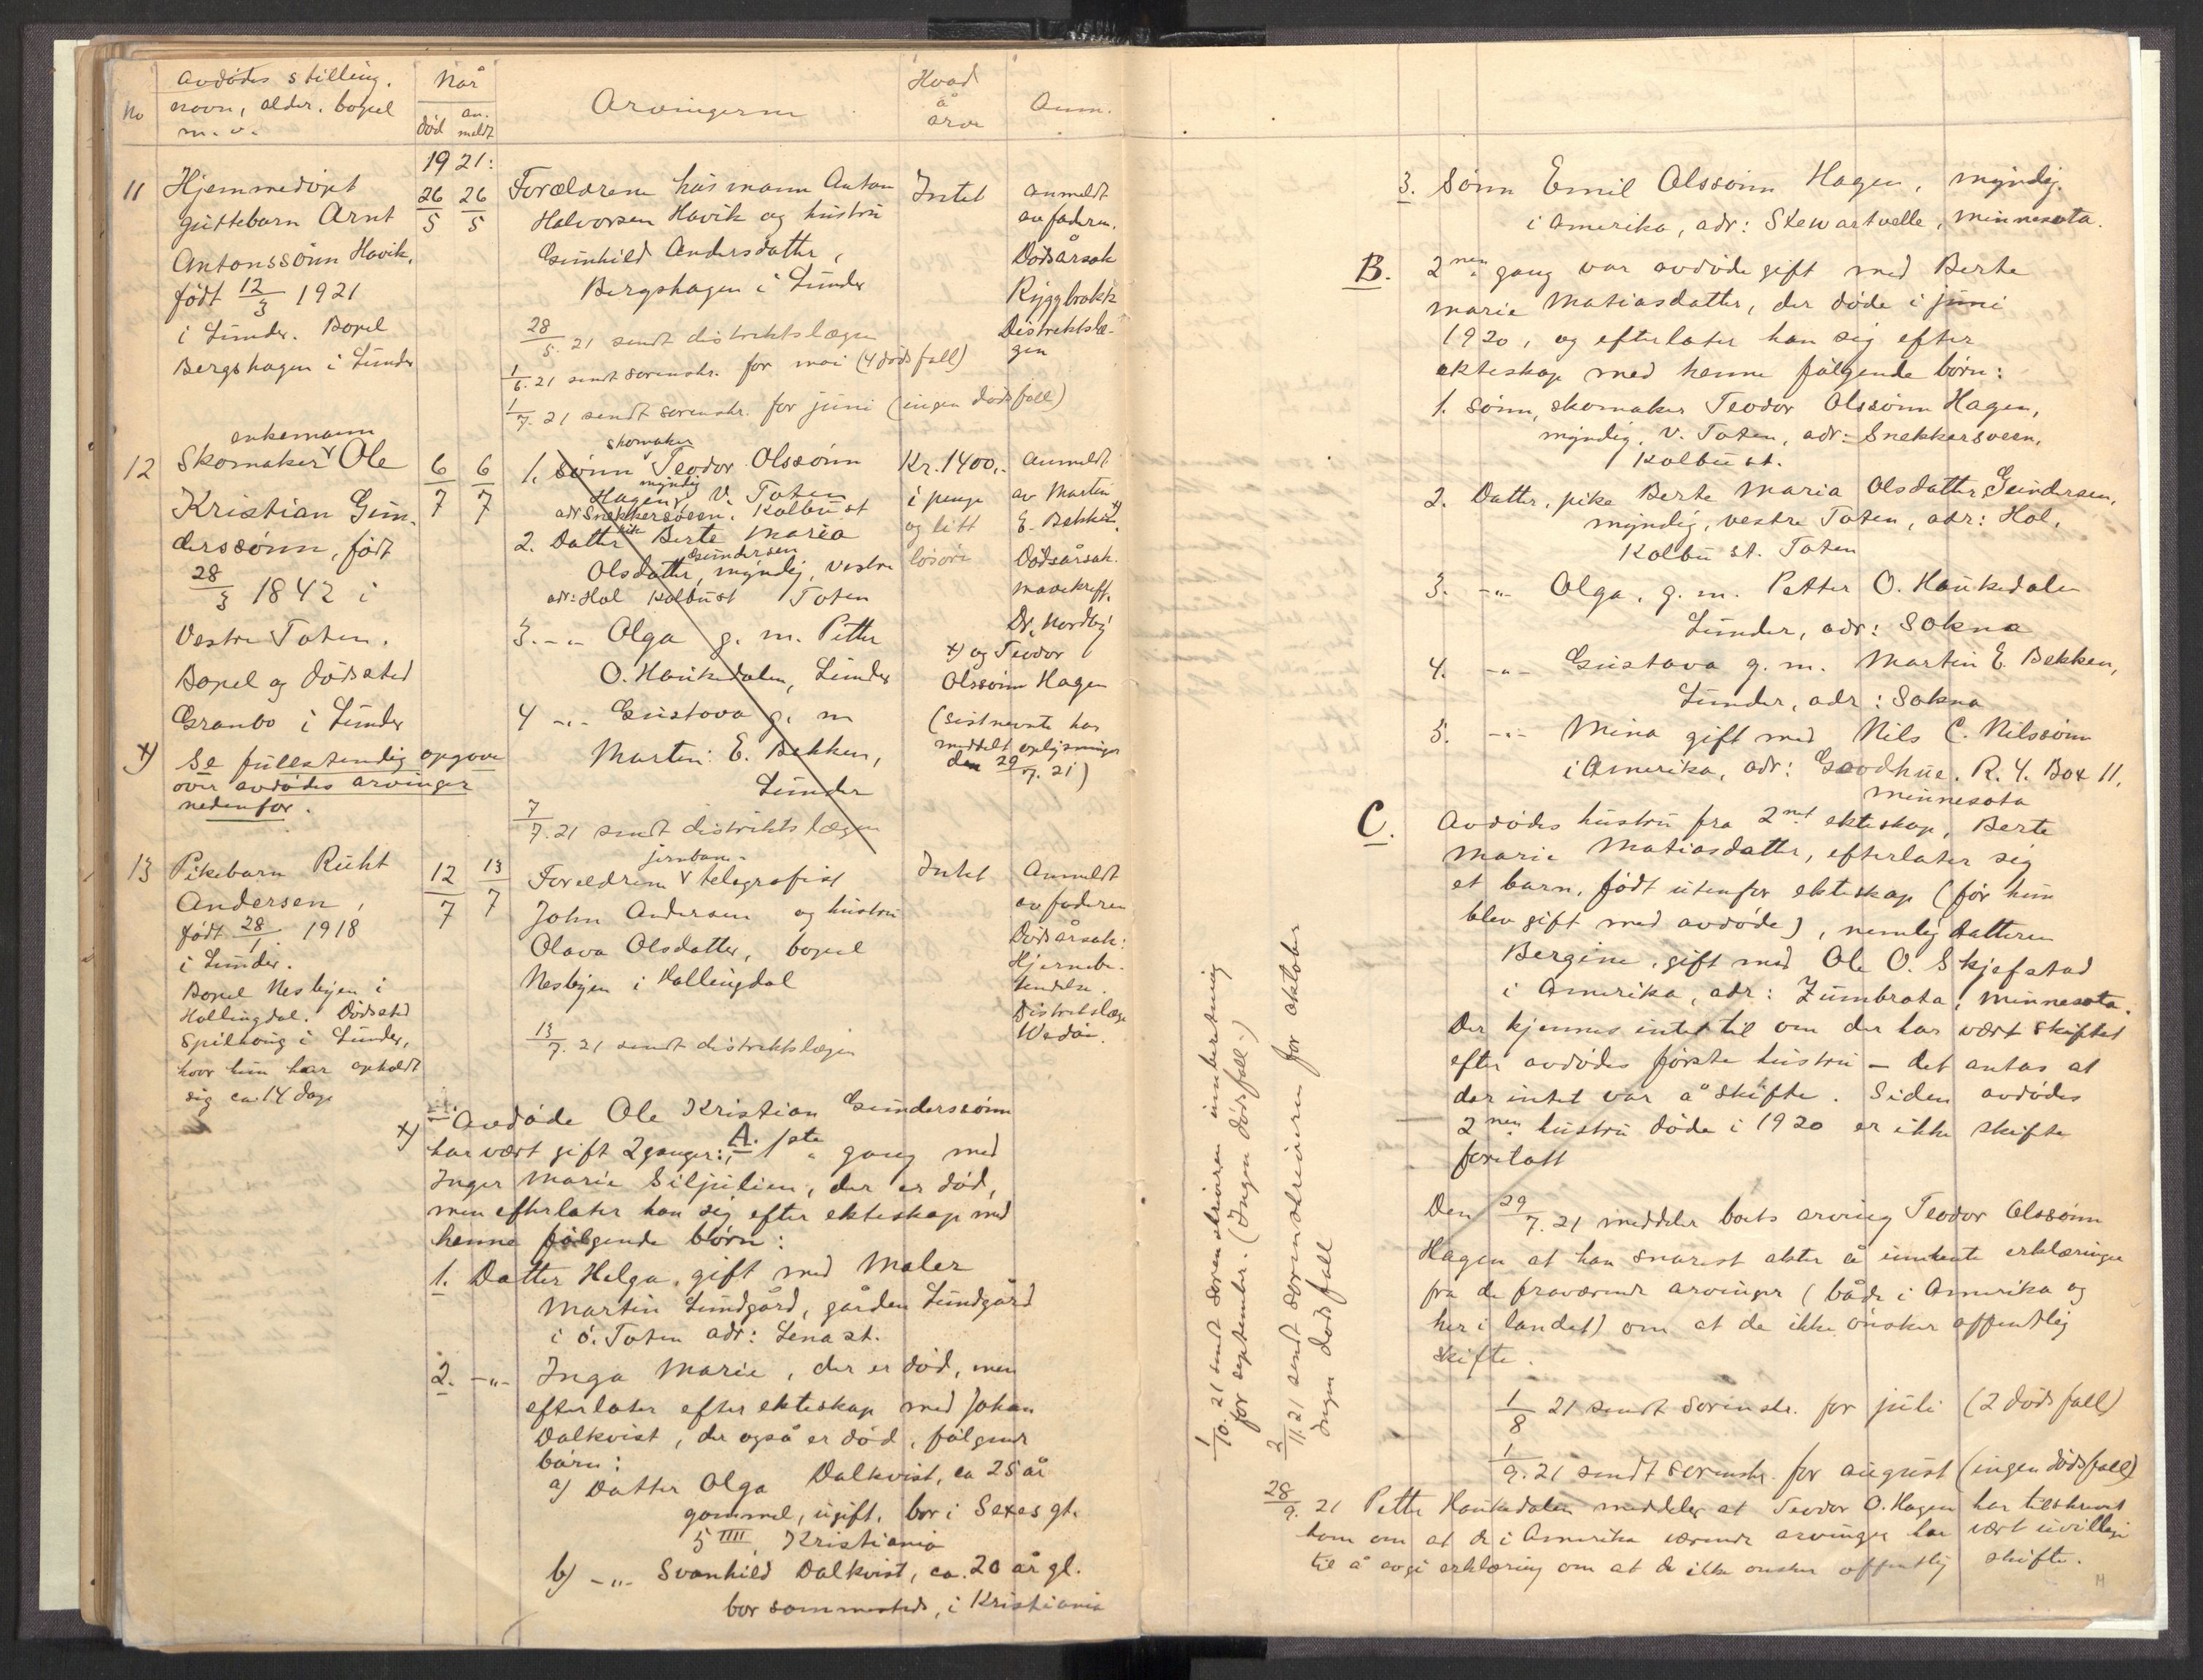 No
Avdødes stilling,
navn, alder, bopel
m. v.
Når
død
an-
meldt
Arvingerne
Hvad
å
arve
Anm.
1921:
11
Hjemmedøpt
guttebarn Arnt
Antonssønn Havik,
født 12/3 1921
i Lunder. Bopel
Bergshagen i Lunder
26/5
26/5
Forældrene husmann Anton
Halvorsen Havik og hustru
Gunhild Andersdatter,
Bergshagen i Lunder
28/5. 21 sendt distriktslægen
1/6. 21 sendt sorenskr. for mai (4 dødsfall)
1/7. 21 sendt sorenskr. for juni (ingen dødsfall)
Intet
Anmeldt
av faderen.
Dødsårsak
Ryggbrokk
Distriktslæ-
gen
12
enkemann
Skomaker Ole
Kristian Gun-
derssønn, født
28/3 1842 i
Vestre Toten.
Bopel og dødssted
Granbo i Lunder
x) Se fullstendig opgave
over avdødes arvinger
nedenfor.
6/7
6/7
skomaker
1. Sønn Teodor Olssønn
myndig
Hagen, V. Toten
adr Snekkersveen. Kolbu st
2. Datter pike Berte Maria
Gundersen
Olsdatter, myndig, Vestre
adr: Hol Kolbu st Toten
3. -"- Olga g. m. Petter
O. Haukedalen, Lunder
4 -"- Gustava g. m
Martin E. Bekken,
Lunder
7/7. 21 sendt distriktslægen
Kr. 1400,-
i penge
og litt
løsøre
Anmeldt
av Martin
E. Bekken x)
Dødsårsak.
Mavekreft.
Dr. Nordby
x) og Teodor
Olssønn Hagen
(sistnevnte har
meddelt oplysninger
den 29/7. 21)
13
Pikebarn Ruht
Andersen,
født 28/1 1918
i Lunder.
Bopel Nesbyen i
Hallingdal. Dødssted
i Lunder,
hvor hun har opholdt
sig ca. 14 dage
12/7
13/7
jernbane-
Foreldrene telegrafist
John Andersen og hustru
Olava Olsdatter, bopel
Nesbyen i Hallingdal
13/7. 21 sendt distriktslægen
Intet
Anmeldt
av faderen
Dødsårsak:
Hjernebe-
tendelse.
Distriktslæge
x) Avdøde Ole Kristian Gunderssønn
har vært gift 2 ganger: A. 1ste gang med
Inger Marie Siljulien, der er død,
men efterlater han sig efter ekteskap med
henne følgende børn:
1. Datter Helga, gift med Maler
Martin Lundgård, gården Lundgård
i Ø. Toten adr: Lena st.
2. -"- Inga Marie, der er død, men
efterlater efter ekteskap med Johan
Dalkvist, der også er død, følgende
børn:
a) Datter Olga Dalkvist, ca 25 år
gammel, ugift, bor i Sexes gt.
5 IIII, Kristiania
b) -"- Svanhild Dalkvist, ca. 20 år gl.
bor sommesteds, i Kristiania
3. Sønn Emil Olssønn Hagen, myndig.
i Amerika, adr: Stewartvelle, Minnesota.
B. 2nen gang var avdøde gift med Berte
Marie Matiasdatter, der døde i juni
1920, og efterlater han sig efter
ekteskap med henne følgende børn:
1. Sønn, skomaker Teodor Olssønn Hagen,
myndig, V. Toten, adr: Snekkersveen,
Kolbu st.
2. Datter, pike Berte Maria Olsdatter Gundersen,
myndig, vestre Toten, adr: Hol,
Kolbu st. Toten
3. -"- Olga, g. m. Petter O. Haukedalen
Lunder, adr: Sokna
4. -"- Gustava g. m. Martin E. Bekken,
Lunder, adr: Sokna
5. -"- Mina gift med Nils C. Nilssønn
i Amerika, adr: Goodhue. R. 4. Box 11,
Minnesota
C. Avdødes hustru fra 2net ekteskap, Berte
Marie Matiasdatter, efterlater sig
et barn, født utenfor ekteskap (før hun
blev gift med avdøde), nemlig datteren
Bergine, gift med Ole O. Skjefstad
i Amerika, adr: Zumbrota, Minnesota.
Der kjennes intet til om der har vært skiftet
efter avdødes første hustru – det antas at
der intet var å skifte. Siden avdødes
2nen hustru døde i 1920 er ikke skifte
foretatt
Den 29/7. 21 meddeler boets arving Teodor Olssønn
Hagen at han snarest akter å innhente erklæringer
fra de fraværende arvinger (både i Amerika og
her i landet) om at de ikke ønsker offentlig
skifte.
1/8 21 sendt sorenskr. for juli (2 dødsfall)
1/9. 21 sendt sorenskr. for august (ingen dødsfall)
28/9. 21 Petter Haukedalen meddeler at Teodor O. Hagen har tilskrevet
ham om at de i Amerika værende arvinger har vært uvillige
til å avgi erklæring om at de ikke ønsker offentlig skifte.
1/10. 21 sendt sorenskriveren innberetning
for september. (Ingen dødsfall.)
2/11. 21 sendt sorenskriveren for oktober
Ingen dødsfall